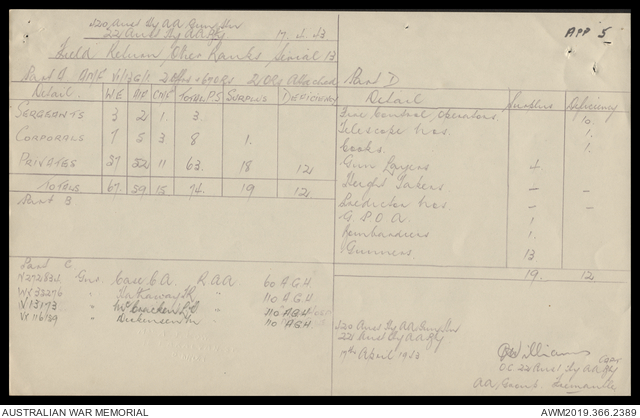 520 Aust Hy AA Gun Stn
22 Aust Hy AA Bty 17.4.43
APP 5
Field Return Other Ranks Serial 13
Part A
attached
Detail W.E AIF CMF TOTAL P.S SURPLUS DEFICIENCY
SERGEANTS 3 2 1. 3.
CORPORALS 7 5 3 8 1.
PRIVATES 57 52 11 63. 18 12
TOTALS 67. 59. 15 74. 19 12.
Part B
Part C
Gnr. Case C.A. R.A.A 60 A.G.H
WX 33276 " Hathaway " 110 A.G.H
V 13173 " McCracken " 110 A.G.H
" Dickenson " 110 A.G.H
Part D
Detail Surplus Deficiency
Fire Control Operators 10
Telescope Nos. 1.
Cooks. 1.
Gun Layers 4
Height Takers – –
Predictor Nos. – –
G.P.O.A. 1
Bombardiers 1
Gunners. 13.
19. 12
520 Aust Hy AA Gun Stn
22 Aust Hy AA Bty
17th April 1943
Williams Capt
OC 22 Aust Hy AA Bty
AA Group Fremantle
AUSTRALIAN WAR MEMORIAL
AWM2019.366.2389